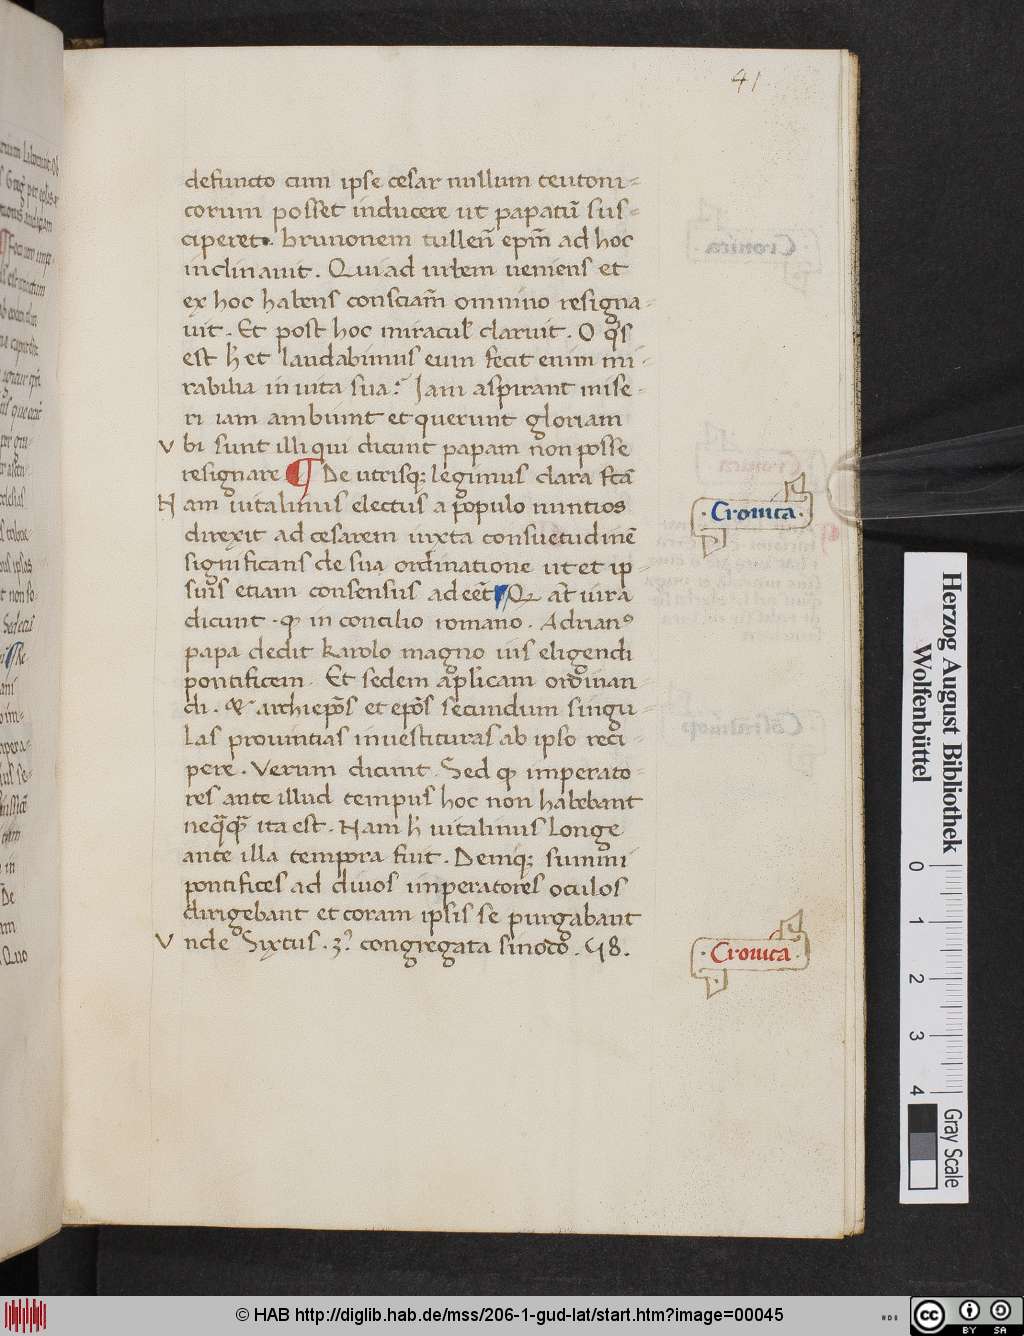 41
defuncto cum ipse cesar nullum teutoni=
corum posset inducere ut papatū sus=
ciperet. brunonem tullen̄ ep̄m ad hoc
inclinauit. Qui ad urbem ueniens et
ex hoc habens consciam̄ omnino resigna=
uit. Et post hoc miracul̓ claruit. O q̓s
est h̓ et laudabimus eum fecit enim mi-
rabilia in uita sua? Iam aspirant mise-
ri iam ambiunt et querunt gloriam
Vbi sunt illi qui dicunt papam non posse
resignare ¶ De utrisq; legimus clara fc̄a
Nam uitalinus electus a populo nuntios
direxit ad cesarem iuxta consuetudinē
significans de sua ordinatione ut et ip-
suis etiam consensus adeēt ¶ Q at̄ uira
dicunt. ꝙ in concilio romano. Adrianꝰ
papa dedit karolo magno ius eligendi
pontificem. Et sedem ap̄licam ordinan-
di. & archiep̄os et ep̄os secundum singu-
las prouintias inuestituras ab ipso reci-
pere. Verum dicunt. Sed ꝙ imperato-
res ante illud tempus hoc non habebant
neq̄q̄ ita est. Nam h̓ uitalinus longe
ante illa tempora fuit. Deniq; summi
pontifices ad diuos imperatores oculos
dirigebant et coram ipsis se purgabant
Vnde Sixtus .3.ꝰ congregata sinodo. 58.
.Cronica.
.Cronica.
Herzog August Bibliothek
Wolfenbüttel
0 1 2 3 4
Gray Scale
© HAB http://diglib.hab.de/mss/206-1-gud-lat/start.htm?image=00045
cc BY SA